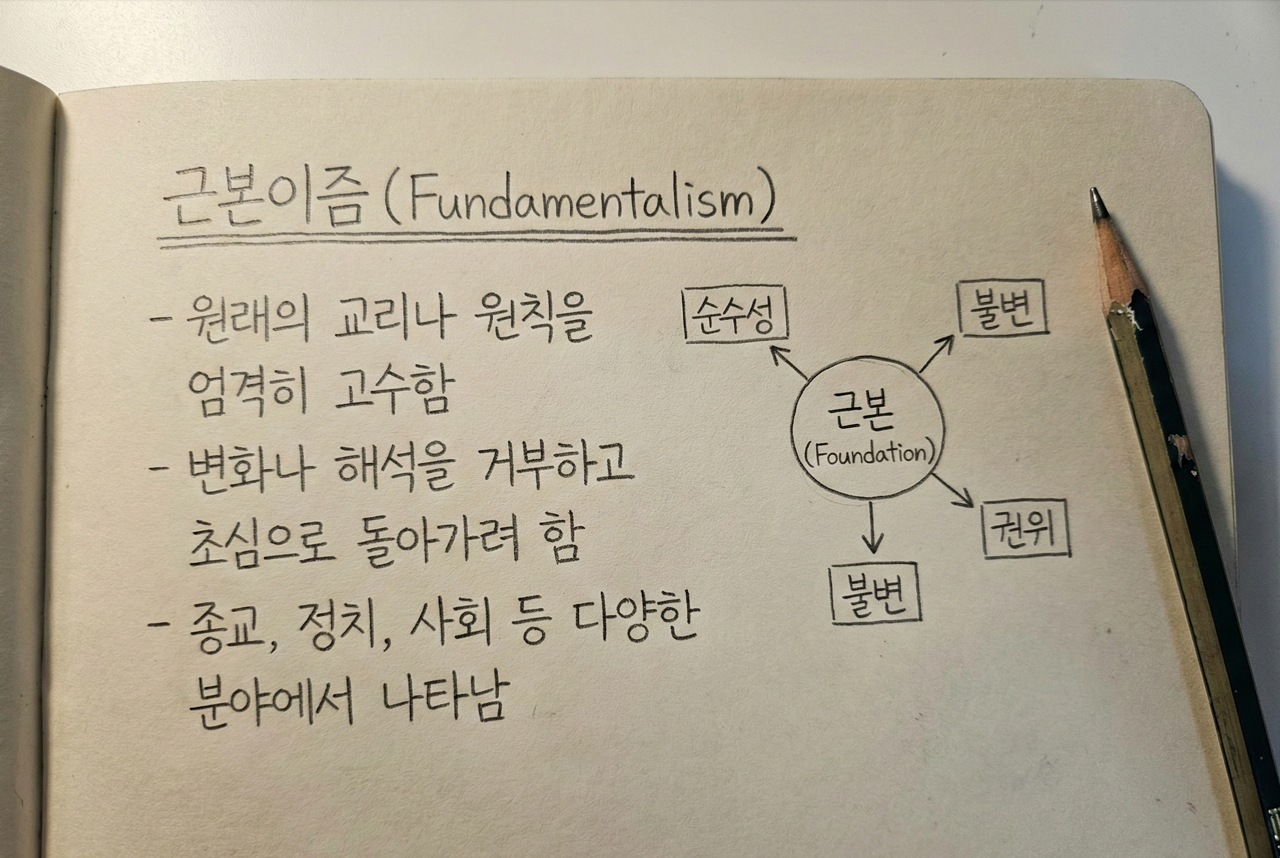 근본이즘 (Fundamentalism)
- 원래의 교리나 원칙을
엄격히 고수함
- 변화나 해석을 거부하고
초심으로 돌아가려 함
- 종교, 정치, 사회 등 다양한
분야에서 나타남
순수성
불변
근본
(Foundation)
권위
불변